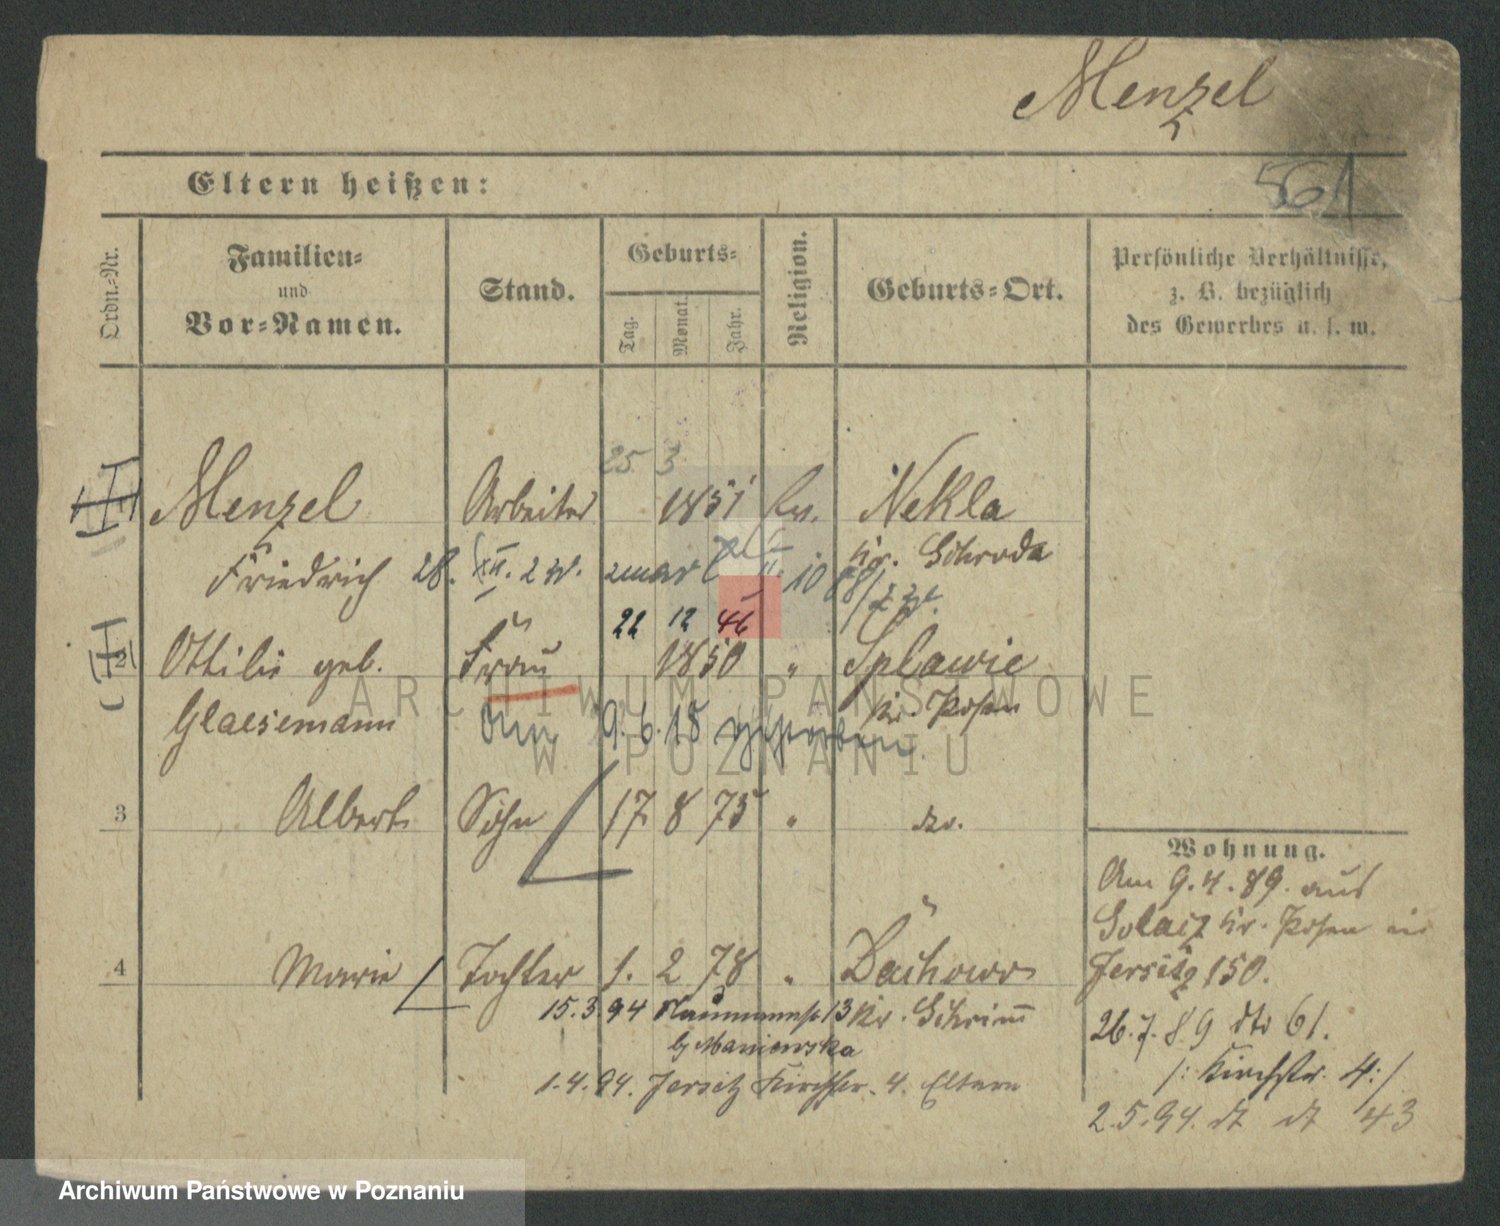 Menzel
561
Eltern heißen:
Ordn.-Nr.
Familien-
und
Vor-Namen.
Stand.
Geburts-
Tag.
Monat.
Jahr.
Religion.
Geburts-Ort.
Persönliche Verhältnisse,
z. B. bezüglich
des Gewerbes u. s. w.
25 3
Menzel Arbeiter 1851 Ev. Nekla
Friedrich 28. XII. Kr. Schroda
22 12 46
2 Ottilie geb. Frau 1850 " Splawie
Glaesemann Kr. Posen
9. 6. 15 gestorben.
3 Albert Sohn 17 8 75 " do.
4 Marie Tochter 1. 2 78 " Dachowo
15.3.94 Naumannstr 13 Kr. Schrimm
b/ Maniewska
1.4.94. Jersitz Kirchstr. 4. Eltern
Wohnung.
Am 9.4.89. aus
Solacz Kr. Posen in
Jersitz 150.
26.7.89 dto 61.
/: Kirchstr. 4:/
2.5.94. dt dt 43
ARCHIWUM PAŃSTWOWE
W POZNANIU
Archiwum Państwowe w Poznaniu